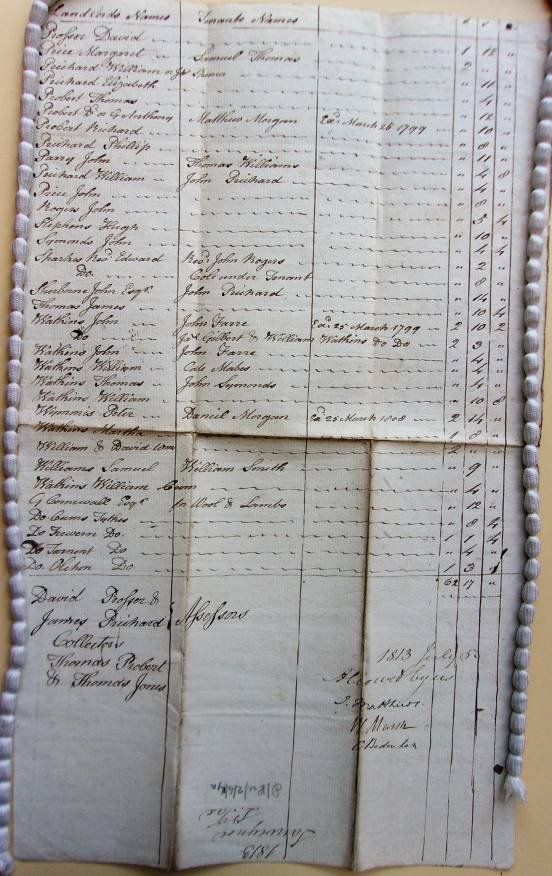 Landlords Names Tenants Names
Prosser David
Price Margret Samuel Thomas 1 12 "
Prichard William 2 " "
Prichard Elizabeth " 11 "
Probert Thomas " 4 "
Probert Do or G Anthony Matthew Morgan Exd. March 25 1799 " 12 "
Probert Richard " 10 "
Prichard Phillip " 8 "
Parry John Thomas Williams " 11 "
Prichard William John Prichard " 4 8
Price John " 4 "
Rogers John " 8 "
Stephens Hugh " 5 4
Symonds John " 10 "
Sparkes Revd. Edward Revd. John Rogers " 4 4
Do. Cole under Tenant " 2 "
Sherborne John Esqr. John Prichard " 8 "
Thomas James " 14 "
Watkins John John Farre Exd. 25 March 1799 " 10 4
Do Jas. Gilbert & William Watkins Do Do 2 10 2
Watkins John John Farre 2 3 "
Watkins William Cale Mabes " 4 "
Watkins Thomas John Symonds " 4 "
Watkins William " 10 8
Winnnis Peter Daniel Morgan Exd. 25 March 1808 2 14 "
Watkins Martha 1 8 "
William & David 2 " "
Williams Samuel William Smith " 9 "
Watkins William " 4 "
G Cornewall Esqr. for Wool & Lambs " 12 "
Do Tythes " 8 4
Do Do. 1 1 4
Do Do " 4 "
Do. Olchon Do 1 3 "
62 17 "
David Prosser &
James Prichard } Assessors
Collectors
Thomas Probert
& Thomas Jones
1813 July 5
Allowed by us
J. Matthews
W Marsh
1813